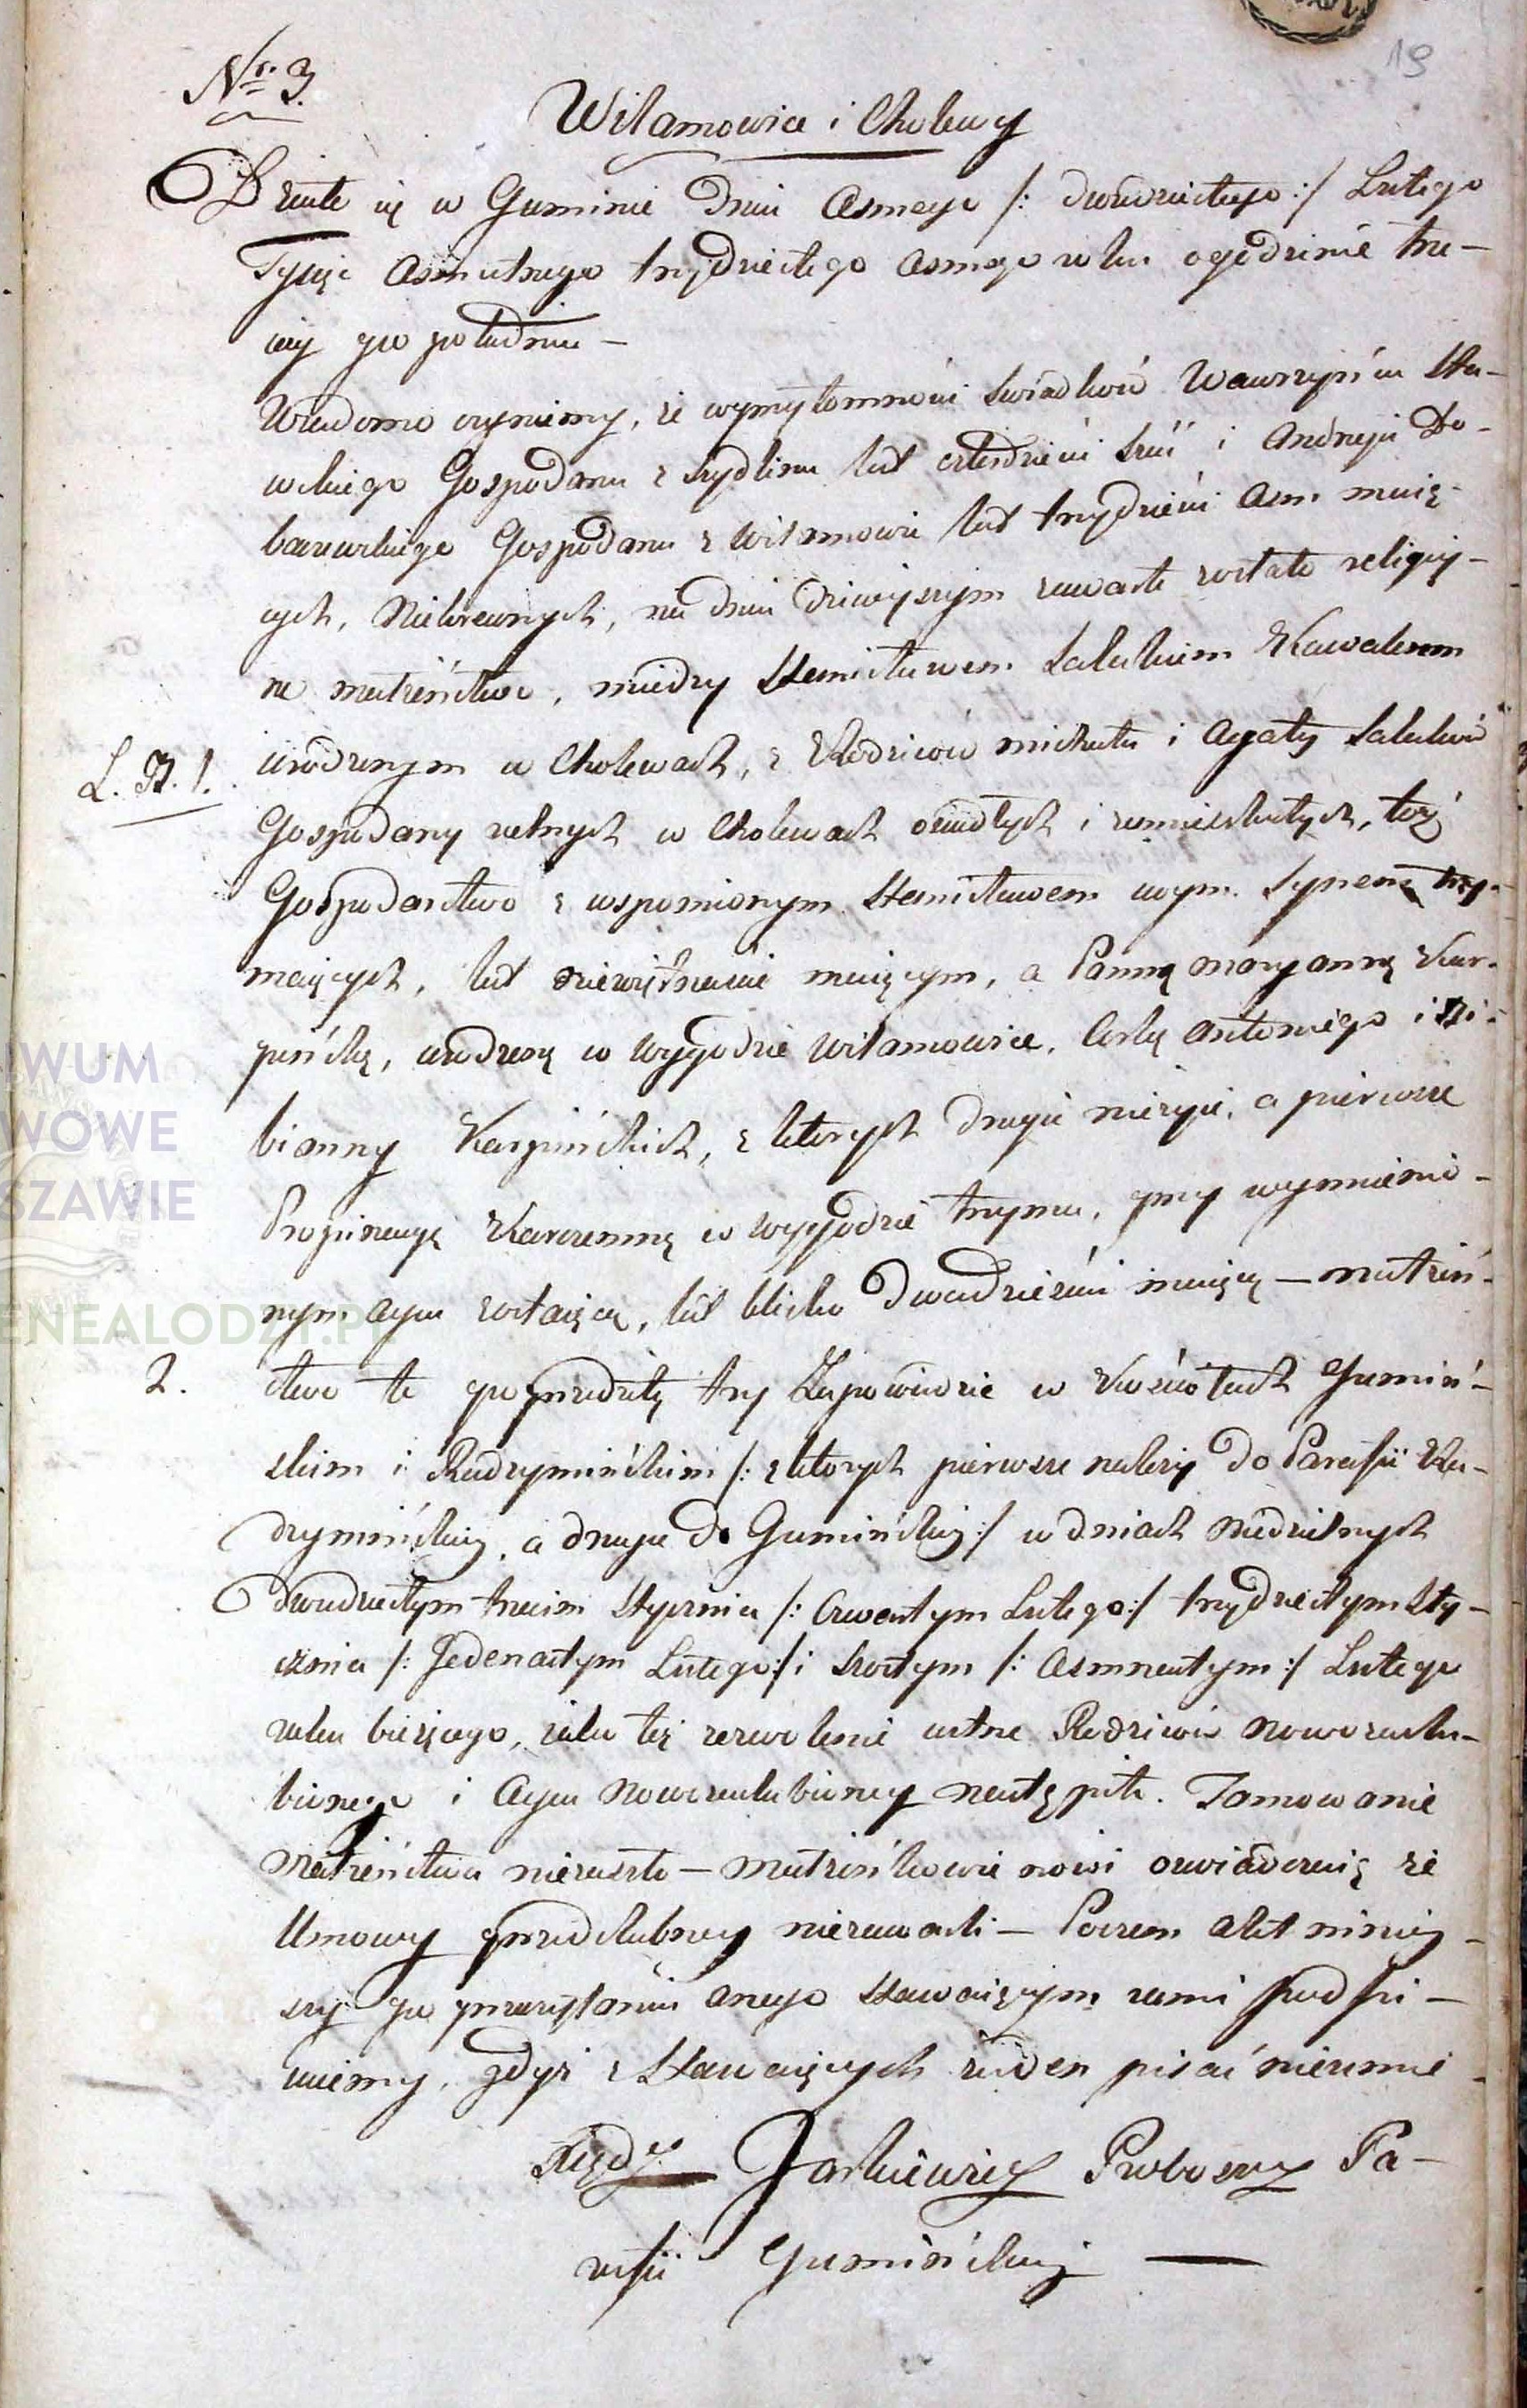 19
Nr. 3.
Wilamowice i Cholewy
Działo się w Guminie dnia Osmego /: dwudziestego :/ Lutego
Tysiąc Osmsetnego trzydziestego Osmego roku o godzinie trze-
ciey po południu —
Wiadomo czyniemy, że wprzytomności Swiadków Wawrzyńca
Gospodarza z Szydlina lat czterdzieści Sześć i Andrzeja
Gospodarza z Wilamowic lat trzydzieści Osm maią-
cych, Niekrewnych, na dniu dzisieyszym zawarte zostało religiy-
ne małżeństwo, między Stanisławem Kawalerem
L. H. 1.
urodzonym w Cholewach, z Rodziców Michała i Agaty
Gospodarzy rolnych w Cholewach osiadłych i zamieszkałych, toż
Gospodarstwo z wspomionym Stanisławem swym Synem trzy-
maiących, lat dziewiętnaście maiącym, a Panną Maryanną Kar-
pińską, urodzoną w Wygodzie Wilamowice, Córką Antoniego i
bianny Karpińskich, z których druga nieżyie, a pierwsze
Propinacyą Karczemną w Wygodzie trzyma, przy wymienio-
nym Oycu zostaiącą, lat blisko dwadzieścia maiącą — małżeń-
2.
stwo te poprzedziły trzy Zapowiedzie w Kościołach Gumiń-
skim i Radzymińskim /: z których pierwsze należy do Parafii Ra-
dzymińskiy, a druga do Gumińskiy :/ w dniach Niedzielnych
dwudziestym trzecim Stycznia /: Czwartym Lutego :/ trzydziestym Sty-
cznia /: Jedenastym Lutego :/ i Szostym /: Osmnastym :/ Lutego
roku bieżącego, iako też zezwolenie ustne Rodziców Nowozaślu-
bionego i Oyca Nowozaślubioney nastąpiło. Tamowanie
Małżeństwa niezaszło — Małżonkowie nowi oswiadczaią że
Umowy przedslubney niezawarli — Poczem Akt niniey-
szy po przeczytaniu onego Stawaiącym sami podpi-
suiemy, gdyż z Stawaiących żaden pisać nieumie
Xiądz Jaskiewicz Proboszcz Pa-
rafii Gumińskiy —
IWUM
WOWE
SZAWIE
ENEALODZY.PL